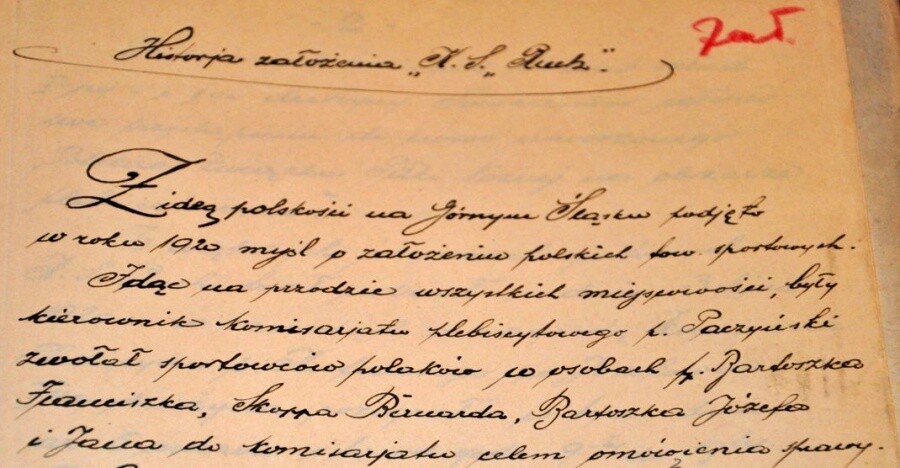 Zał.
Historja założenia „K. S. „Ruch".
Z ideą polskości na Górnym Śląsku podjęto
w roku 1920 myśl o założeniu polskich tow. sportowych.
Idąc na przodzie wszystkich miejscowości, były
kierownik komisarjatu plebiscytowego p. Paczyński
zwołał sportowców polaków w osobach p. Bartoszka
Franciszka, Skoppa Bernarda, Bartoszka Józefa
i Jana do komisarjatu celem omówienia sprawy.